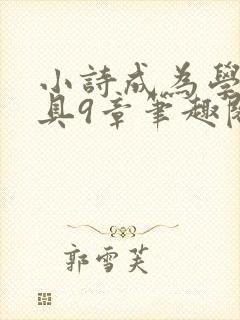 小詩成為學
具9章筆趣閣
郭雪芙